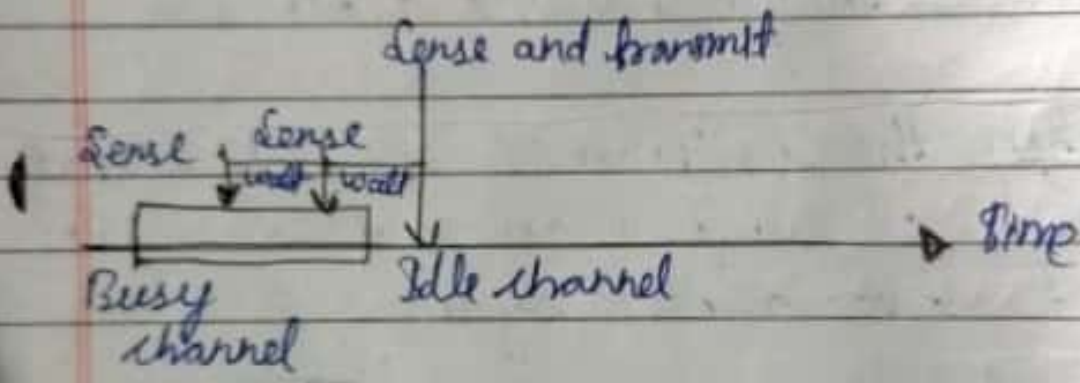 Sense and transmit
Sense
Sense
wait wait
Time
Busy
channel
Idle channel